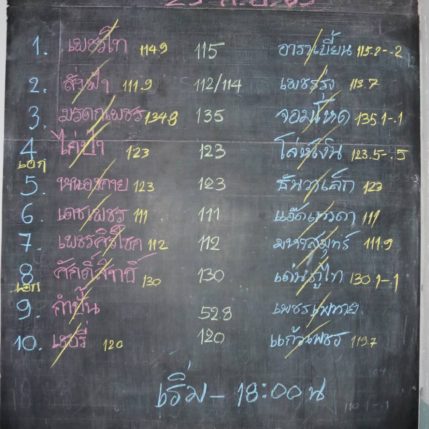 1. เพชรโท 114.9 115 อาราเบี้ยน 115.2-.2
2. สิงฟ้า 111.9 112/114 113.7
3. มรดกเพชร 134.8 135 จอมโหด 135.1-.1
4 ไก่ป่า 123 123 โล่เงิน 123.5-.5
เอก
5. 123 123 ธันวาเล็ก 123
6. เดชเพชร 111 111 111
7. เพชรสีโชค 112 112 มหาสมุทร์ 111.9
8 ศักดิ์สิทธิ์ 130 130 เด่นภูไท 130.1-.1
เอก
9. กำปั้น 528
10. เชอรี่ 120 120 แก้วเพชร 119.7
เริ่ม - 18:00 น